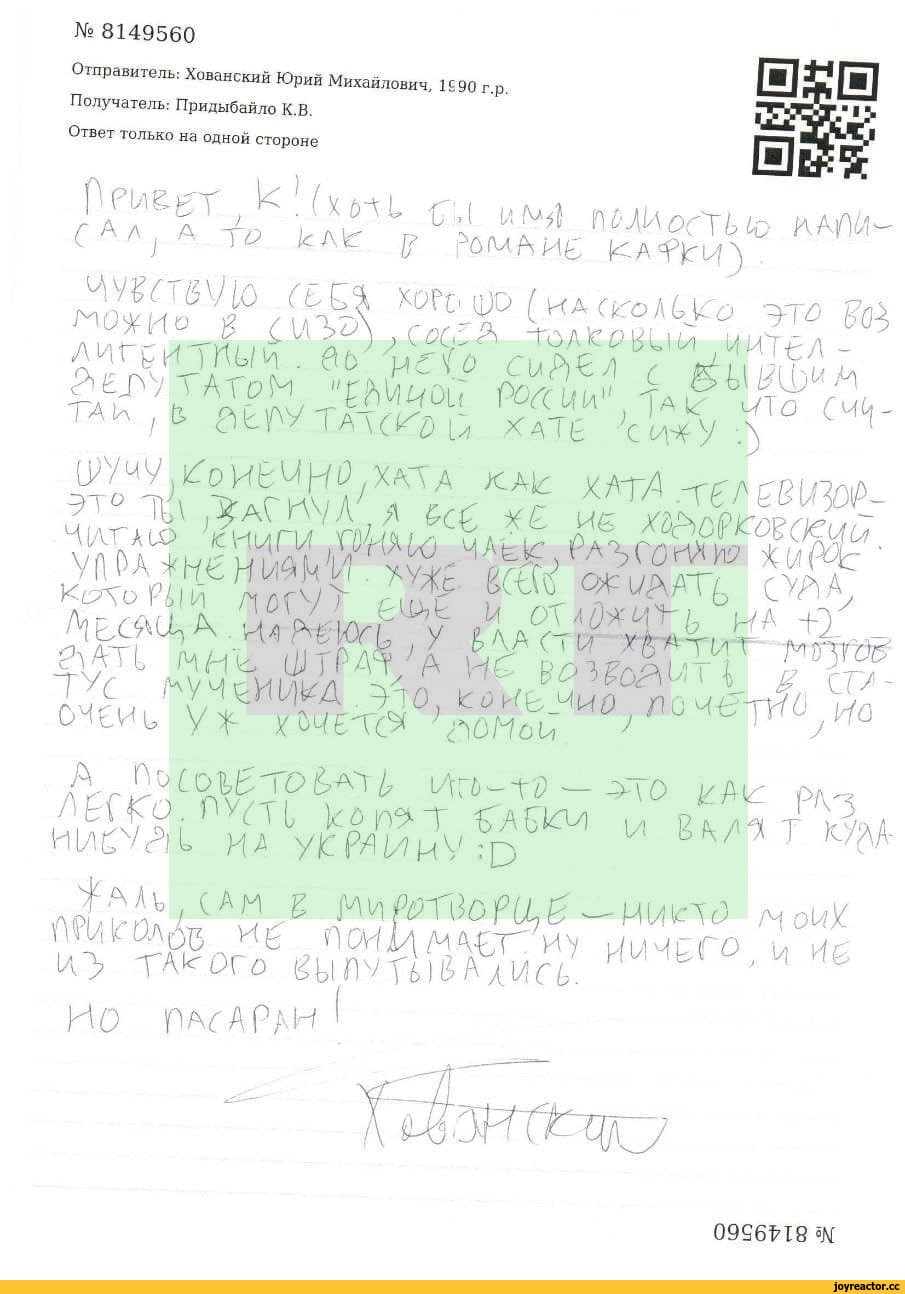 № 8149560
Отправитель: Хованский Юрий Михайлович, 1990 г.р.
Получатель: Придыбайло К.В.
Ответ только на одной стороне
ПРИВЕТ, К! (ХОТЬ БЫ ИМЯ ПОЛНОСТЬЮ НАПИ-
САЛ, А ТО КАК В РОМАНЕ КАФКИ).
ЧУВСТВУЮ СЕБЯ ХОРОШО (НАСКОЛЬКО ЭТО ВОЗ
МОЖНО В СИЗО), СОСЕД ТОЛКОВЫЙ, ИНТЕЛ-
ЛИГЕНТНЫЙ. ДО НЕГО СИДЕЛ С БЫВШИМ
ДЕПУТАТОМ "ЕДИНОЙ РОССИИ", ТАК ЧТО СЧИ-
ТАЙ, В ДЕПУТАТСКОЙ ХАТЕ СИЖУ :)
ШУЧУ, КОНЕЧНО, ХАТА КАК ХАТА. ТЕЛЕВИЗОР-
ЭТО ТЫ ЗАГНУЛ, Я ВСЕ ЖЕ НЕ ХОДОРКОВСКИЙ.
ЧИТАЮ КНИГИ, ГОНЯЮ ЧАЕК, РАЗГОНЯЮ ЖИРОК
УПРАЖНЕНИЯМИ. ХУЖЕ ВСЕГО ОЖИДАТЬ СУДА,
КОТОРЫЙ МОГУТ ЕЩЕ И ОТЛОЖИТЬ НА +2
МЕСЯЦА. НАДЕЮСЬ, У ВЛАСТИ ХВАТИТ МОЗГОВ
ДАТЬ МНЕ ШТРАФ, А НЕ ВОЗВОДИТЬ В СТА-
ТУС МУЧЕНИКА. ЭТО, КОНЕЧНО, ПОЧЕТНО, НО
ОЧЕНЬ УЖ ХОЧЕТСЯ ДОМОЙ
А ПОСОВЕТОВАТЬ ЧТО-ТО — ЭТО КАК РАЗ
ЛЕГКО. ПУСТЬ КОПЯТ БАБКИ И ВАЛЯТ КУДА-
НИБУДЬ НА УКРАИНУ :D
ЖАЛЬ, САМ В МИРОТВОРЦЕ — НИКТО МОИХ
ПРИКОЛОВ НЕ ПОНИМАЕТ. НУ НИЧЕГО, И НЕ
ИЗ ТАКОГО ВЫПУТЫВАЛИСЬ.
НО ПАСАРАН!
Хованский
RT
№ 8149560
joyreactor.cc